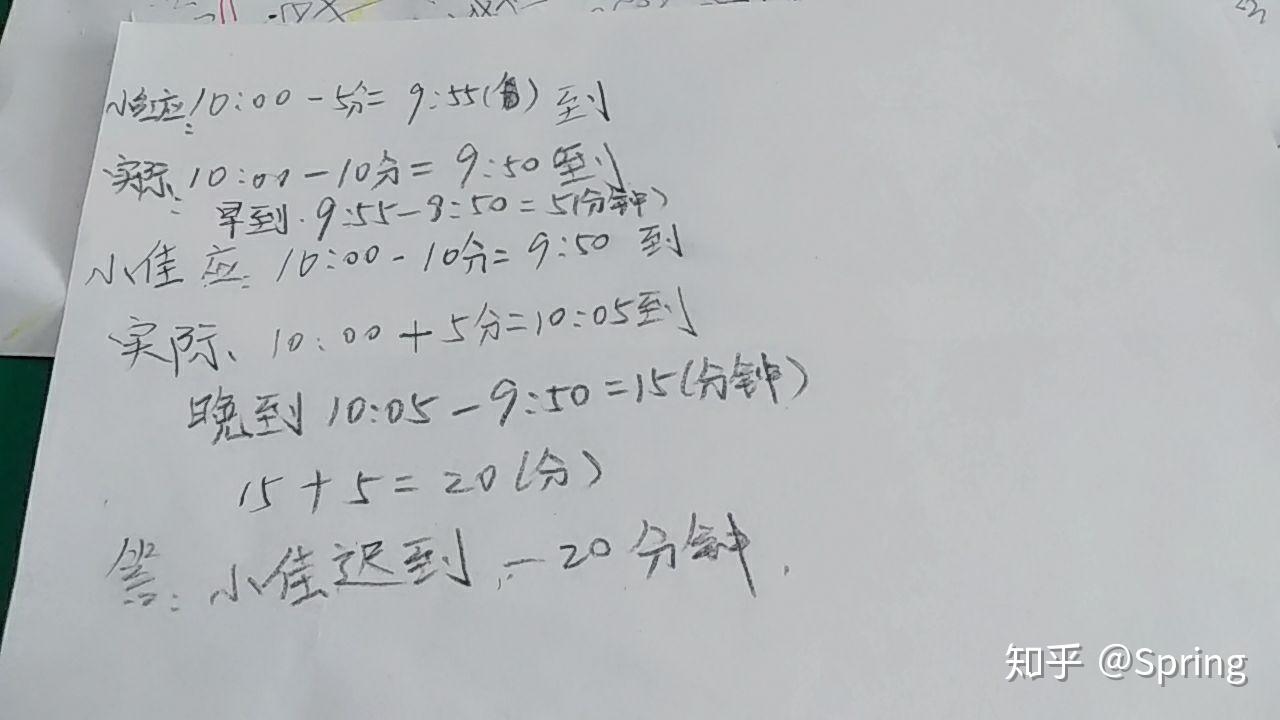 小红应: 10:00-5分=9:55() 到
实际: 10:00-10分=9:50到
早到.9:55-9:50=5(分钟)
小佳应: 10:00-10分=9:50 到
实际、10:00+5分=10:05到
晚到 10:05-9:50=15(分钟)
15+5=20(分)
答:小佳迟到 20分钟.
知乎 @Spring